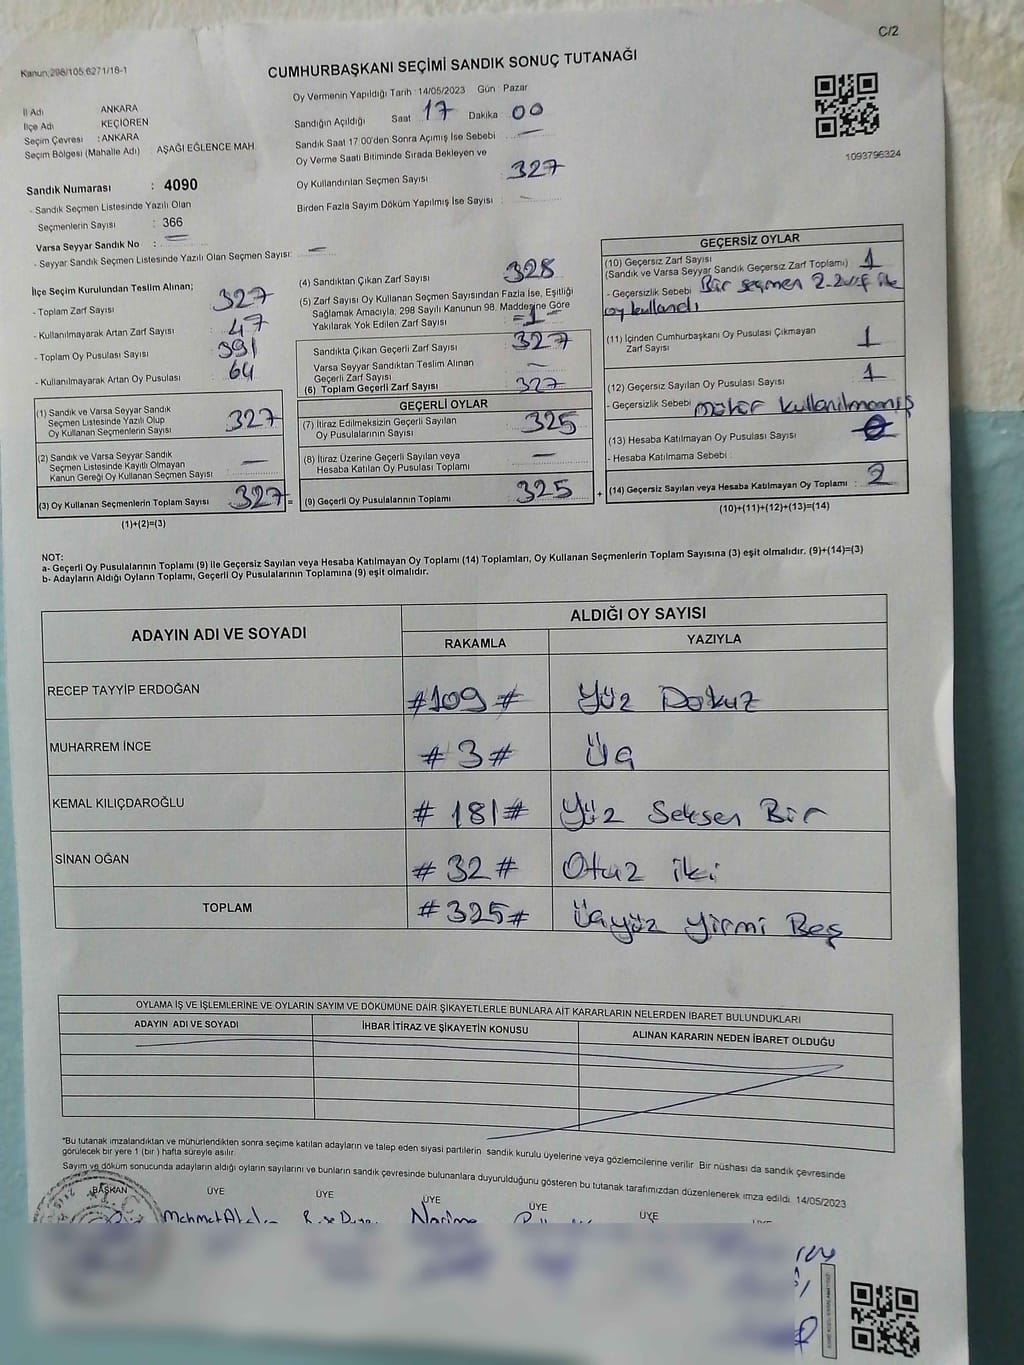 C/2
Kanun;298/105;6271/18-1
CUMHURBAŞKANI SEÇİMİ SANDIK SONUÇ TUTANAĞI
İl Adı ANKARA
İlçe Adı KEÇİÖREN
Seçim Çevresi : ANKARA
Seçim Bölgesi (Mahalle Adı) AŞAĞI EĞLENCE MAH
Sandık Numarası : 4090
- Sandık Seçmen Listesinde Yazılı Olan
Seçmenlerin Sayısı : 366
Varsa Seyyar Sandık No : —
- Seyyar Sandık Seçmen Listesinde Yazılı Olan Seçmen Sayısı: —
Oy Vermenin Yapıldığı Tarih : 14/05/2023 Gün : Pazar
Sandığın Açıldığı Saat 17 Dakika 00
Sandık Saat 17.00'den Sonra Açımış İse Sebebi : —
Oy Verme Saati Bitiminde Sırada Bekleyen ve
Oy Kullandırılan Seçmen Sayısı : 327
Birden Fazla Sayım Döküm Yapılmış İse Sayısı : —
1093796324
İlçe Seçim Kurulundan Teslim Alınan;
- Toplam Zarf Sayısı : 327
- Kullanılmayarak Artan Zarf Sayısı : 47
- Toplam Oy Pusulası Sayısı : 391
- Kullanılmayarak Artan Oy Pusulası : 64
(1) Sandık ve Varsa Seyyar Sandık
Seçmen Listesinde Yazılı Olup
Oy Kullanan Seçmenlerin Sayısı : 327
(2) Sandık ve Varsa Seyyar Sandık
Seçmen Listesinde Kayıtlı Olmayan
Kanun Gereği Oy Kullanan Seçmen Sayısı : —
(3) Oy Kullanan Seçmenlerin Toplam Sayısı : 327 =
(1)+(2)=(3)
(4) Sandıktan Çıkan Zarf Sayısı : 328
(5) Zarf Sayısı Oy Kullanan Seçmen Sayısından Fazla İse, Eşitliği
Sağlamak Amacıyla, 298 Sayılı Kanunun 98. Maddesine Göre
Yakılarak Yok Edilen Zarf Sayısı : =1=
Sandıkta Çıkan Geçerli Zarf Sayısı : 327
Varsa Seyyar Sandıktan Teslim Alınan
Geçerli Zarf Sayısı : —
(6) Toplam Geçerli Zarf Sayısı : 327
GEÇERLİ OYLAR
(7) İtiraz Edilmeksizin Geçerli Sayılan
Oy Pusulalarının Sayısı : 325
(8) İtiraz Üzerine Geçerli Sayılan veya
Hesaba Katılan Oy Pusulası Toplamı : —
(9) Geçerli Oy Pusulalarının Toplamı : 325 +
GEÇERSİZ OYLAR
(10) Geçersiz Zarf Sayısı
(Sandık ve Varsa Seyyar Sandık Geçersiz Zarf Toplamı) : 1
- Geçersizlik Sebebi : Bir seçmen 2. zarf ile
oy kullandı
(11) İçinden Cumhurbaşkanı Oy Pusulası Çıkmayan
Zarf Sayısı : 1
(12) Geçersiz Sayılan Oy Pusulası Sayısı : 1
- Geçersizlik Sebebi : mühür kullanılmamış
(13) Hesaba Katılmayan Oy Pusulası Sayısı : 0
- Hesaba Katılmama Sebebi :
(14) Geçersiz Sayılan veya Hesaba Katılmayan Oy Toplamı : 2
(10)+(11)+(12)+(13)=(14)
NOT:
a- Geçerli Oy Pusulalarının Toplamı (9) İle Geçersiz Sayılan veya Hesaba Katılmayan Oy Toplamı (14) Toplamları, Oy Kullanan Seçmenlerin Toplam Sayısına (3) eşit olmalıdır. (9)+(14)=(3)
b- Adayların Aldığı Oyların Toplamı, Geçerli Oy Pusulalarının Toplamına (9) eşit olmalıdır.
ADAYIN ADI VE SOYADI ALDIĞI OY SAYISI
RAKAMLA YAZIYLA
RECEP TAYYİP ERDOĞAN #109# Yüz Dokuz
MUHARREM İNCE #3# Üç
KEMAL KILIÇDAROĞLU #181# Yüz Seksen Bir
SİNAN OĞAN #32# Otuz iki
TOPLAM #325# Üçyüz yirmi Beş
OYLAMA İŞ VE İŞLEMLERİNE VE OYLARIN SAYIM VE DÖKÜMÜNE DAİR ŞİKAYETLERLE BUNLARA AİT KARARLARIN NELERDEN İBARET BULUNDUKLARI
ADAYIN ADI VE SOYADI İHBAR İTİRAZ VE ŞİKAYETİN KONUSU ALINAN KARARIN NEDEN İBARET OLDUĞU
*Bu tutanak imzalandıktan ve mühürlendikten sonra seçime katılan adayların ve talep eden siyasi partilerin sandık kurulu üyelerine veya gözlemcilerine verilir. Bir nüshası da sandık çevresinde
görülecek bir yere 1 (bir) hafta süreyle asılır.
Sayım ve döküm sonucunda adayların aldığı oyların sayılarını ve bunların sandık çevresinde bulunanlara duyurulduğunu gösteren bu tutanak tarafımızdan düzenlenerek imza edildi. 14/05/2023
BAŞKAN ÜYE ÜYE ÜYE ÜYE ÜYE ÜYE
Mehmet